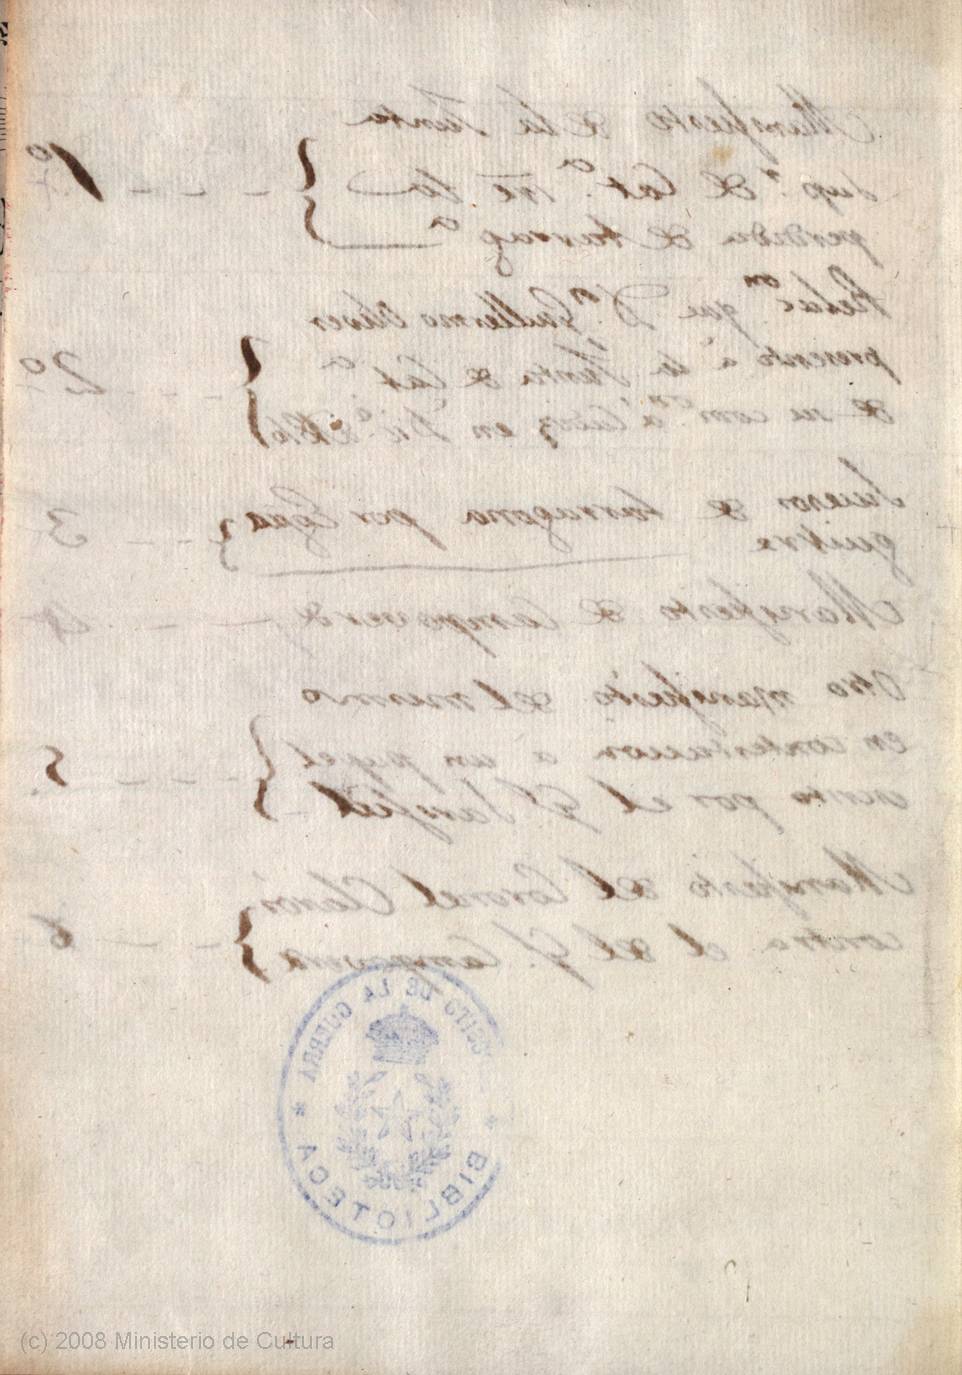 Manifiesto de la Junta
Sup.r de Cat.a sre la 1º
perdida de tarrag.a
Relac.on que D.n Guillermo Oliver
presentó a la Junta de Cat.a 2º
de su com.on a Cadiz en
Sucesos de tarragona por 3
Manifiesto de Campoverde 4
Otro manifiesto del mismo
en contestacion a un papel 5
escrito por el Sarsfield
Manifiesto del Coronel
contra el del Campoverde 6
DE LA GUERRA
BIBLIOTECA
(c) 2008 Ministerio de Cultura